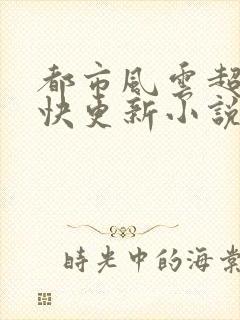 都市風雲超
快更新小說
時光中的海棠